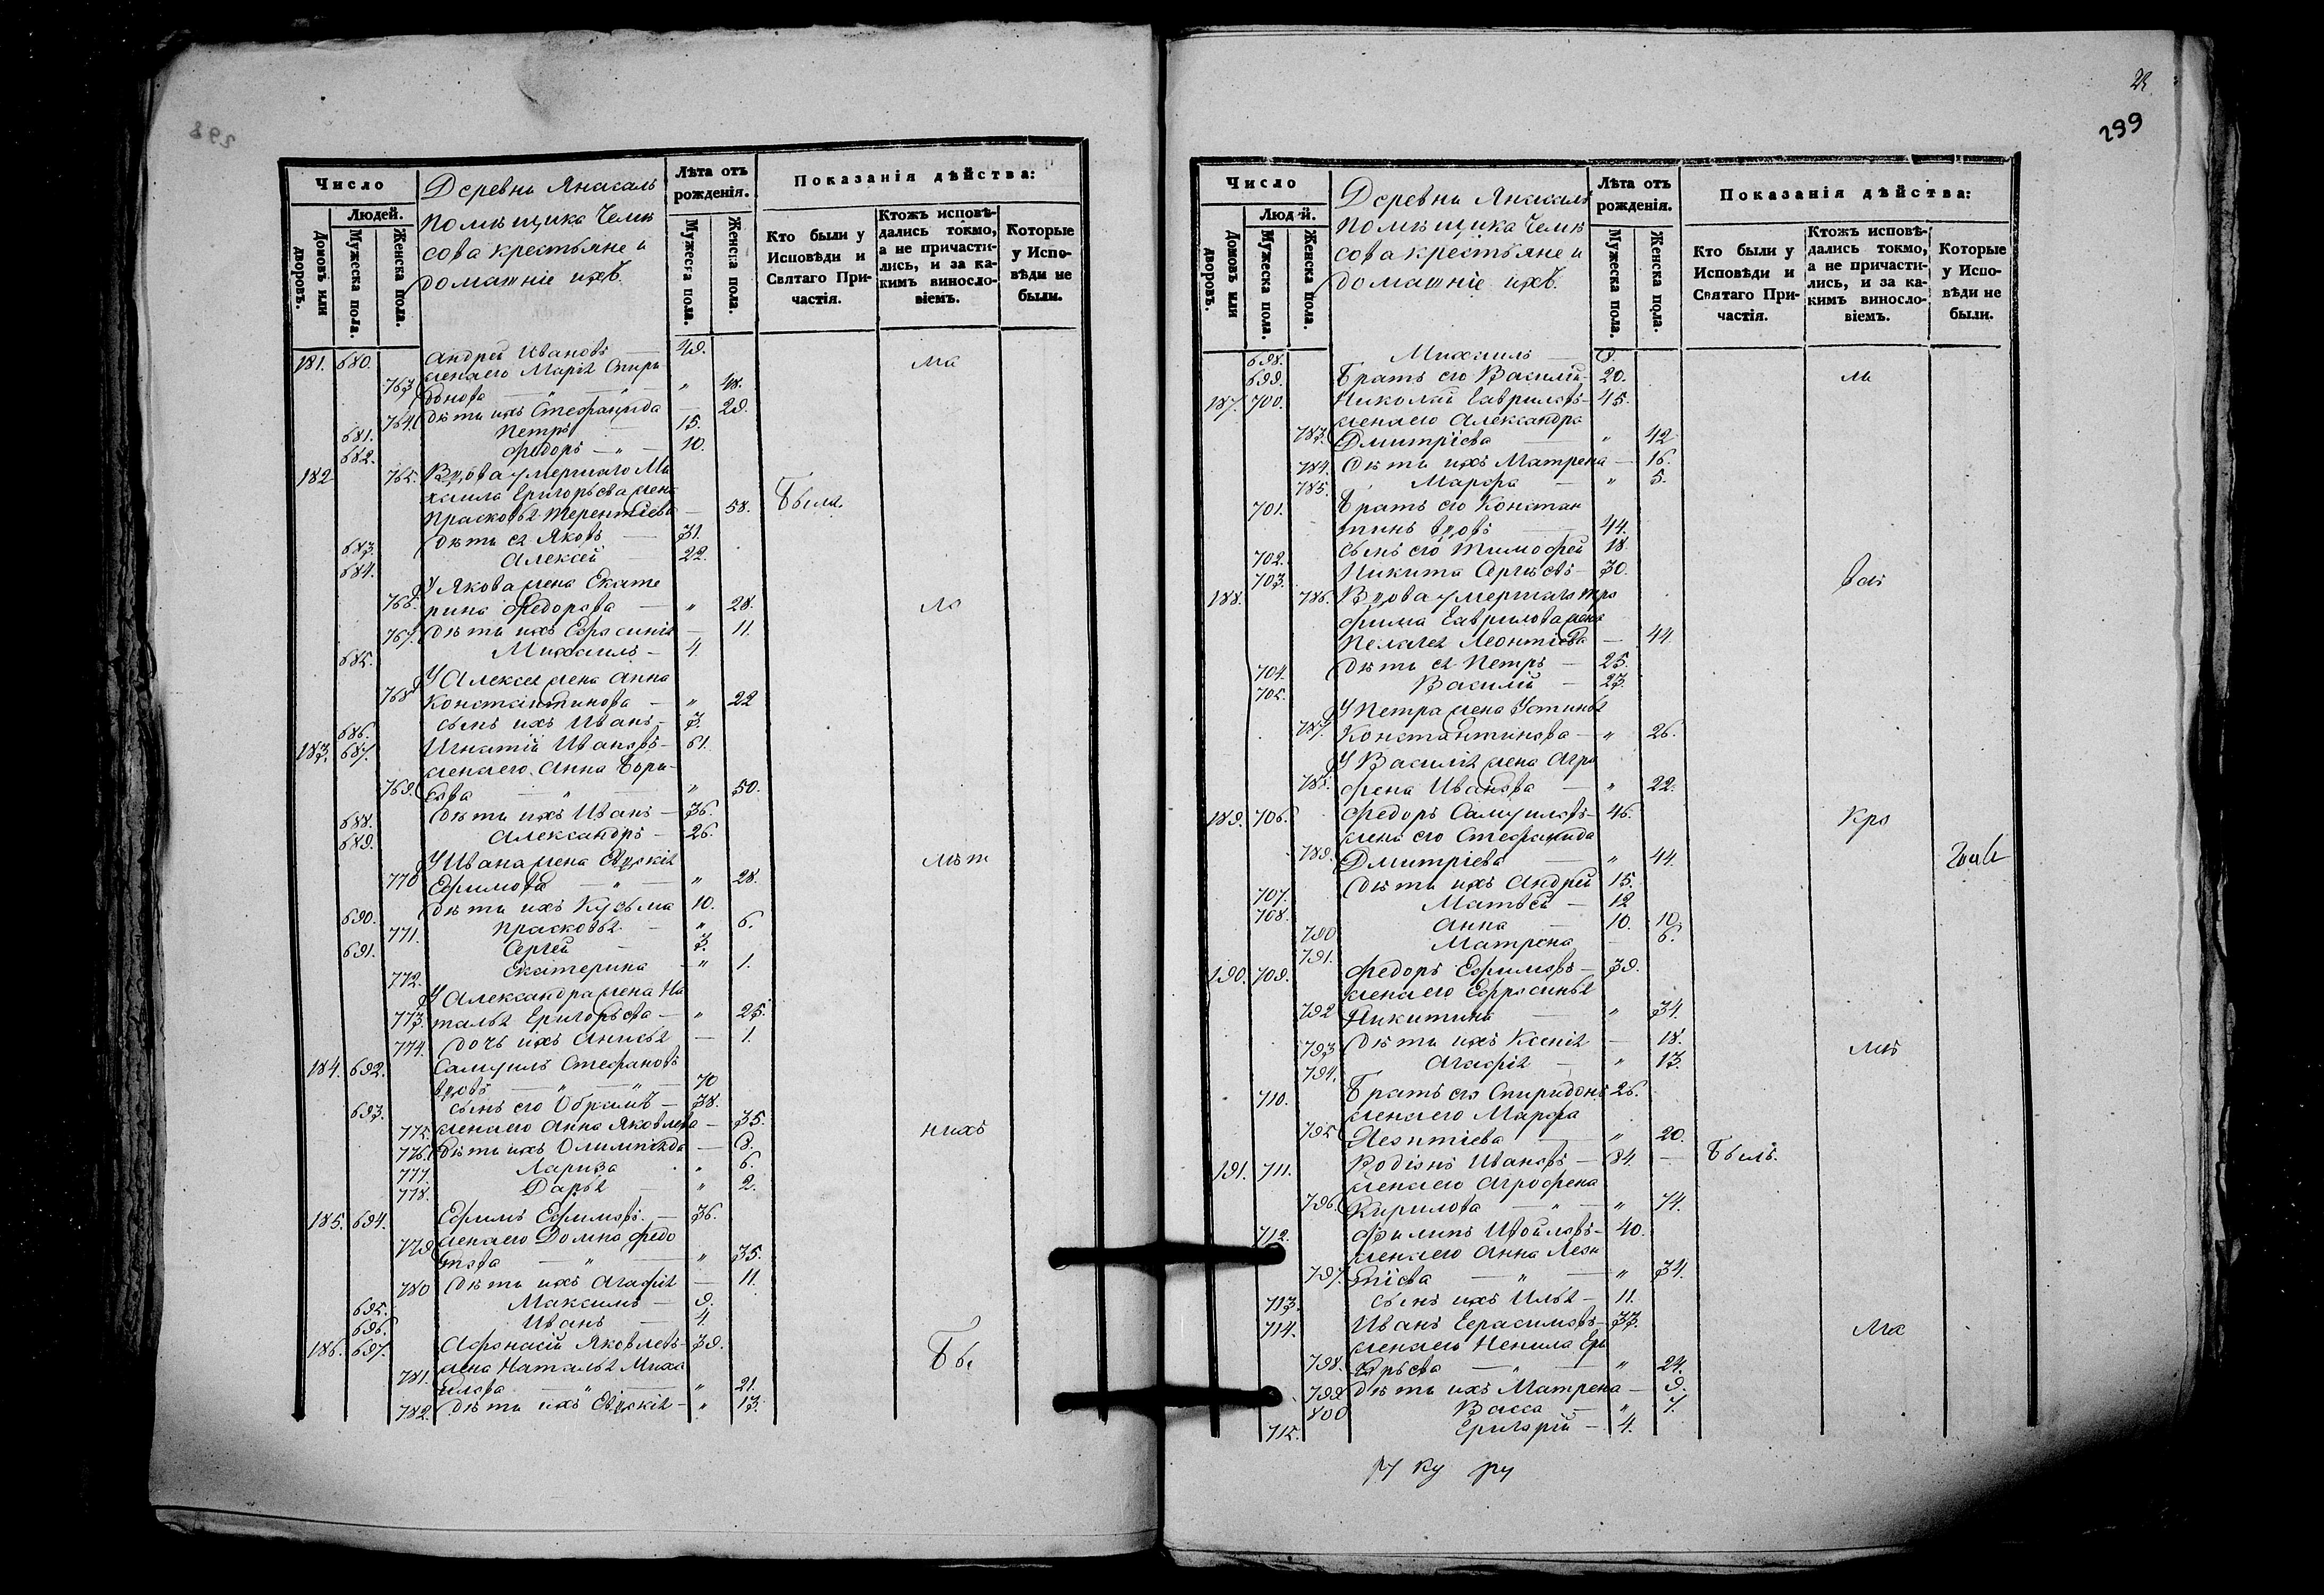 Число
Людей.
Домовъ или дворовъ.
Мужеска пола.
Женска пола.
Деревни Янасаль
помѣщика Челю
сова крестьяне и
домашніе ихъ.
Лѣта отъ рожденія.
Мужеска пола.
Женска пола.
Показанія дѣйства:
Кто были у Исповѣди и Святаго Причастія.
Ктожъ исповѣдались токмо, а не причастились, и за какимъ винословіемъ.
Которые у Исповѣди не были.
181. 680. Андрей Ивановъ — 49.
жена его Марія Спири
763 донова — " 48.
764. Дѣти ихъ Стефанида — 29.
681. Петръ — 15.
682. Федоръ — " — 10.
182 765. Вдова умершаго Ми
хаила Григорьева жена
Прасковья Терентіева — 58. Были.
683. Дѣти ея Яковъ — 31.
684. Алексей 22.
У Якова жена Екате
766. рина Федорова — " 28.
767. Дѣти ихъ Ефросинія — 11.
685. Михаилъ — 4.
У Алексея жена Анна
768 Константинова — " 22
686. сынъ ихъ Иванъ — 3.
183. 687. Игнатій Ивановъ — 61.
жена его Анна Бори-
769. сова — " — " 50.
688. Дѣти ихъ Иванъ — 36.
689. Александръ — 26.
У Ивана жена Евдокія
770 Ефимова — " — " 28.
690. Дѣти ихъ Кузьма 10.
771. Прасковья — " 6.
691. Сергей — 3.
772. Екатерина — " 1.
У Александра жена На
773. талья Григорьева — " 25.
774. Дочь ихъ Анисья — 1.
184. 692. Самуилъ Стефановъ
вдовъ — " — " — 70
693. сынъ его Обрамъ — 38.
775. жена его Анна Яковлева — 35.
776. Дѣти ихъ Олимпіада — 8.
777. Лариза " 6.
778. Дарья — " 2.
нихъ
185. 694. Ефимъ Ефимовъ — 36.
жена его Домна Федо
779 това — " — " 35.
780 Дѣти ихъ Агафія — 11.
695. Максимъ — 9.
696. Иванъ — 4.
186. 697. Афонасій Яковлевъ — 39.
781. жена Наталья Миха
илова — " — " 21.
782. Дѣти ихъ Евдокія — " 13.
299
Число
Людей.
Домовъ или дворовъ.
Мужеска пола.
Женска пола.
Деревни Янасаль
помѣщика Челю
сова крестьяне и
домашніе ихъ.
Лѣта отъ рожденія.
Мужеска пола.
Женска пола.
Показанія дѣйства:
Кто были у Исповѣди и Святаго Причастія.
Ктожъ исповѣдались токмо, а не причастились, и за какимъ винословіемъ.
Которые у Исповѣди не были.
698. Михаилъ — 8.
699. Братъ его Василій — 20.
187. 700. Николай Гавриловъ — 45.
жена его Александра
783. Дмитріева — " 42
784. Дѣти ихъ Матрена — 16.
785. Марфа — " 5.
701. Братъ его Констан
тинъ вдовъ — 44.
702. сынъ его Тимофей 18.
703. Никита Сергѣевъ — 30.
188. 786. Вдова умершаго Тро
фима Гаврилова жена
Пелагея Леонтіева — 44.
704. Дѣти ея Петръ — 25.
705. Василій — 23.
У Петра жена Устинья
787. Константинова — " 26.
У Василія жена Агро
788. фена Иванова — " 22.
189. 706. Федоръ Самуиловъ — 46.
жена его Стефанида
789. Дмитріева — " 44.
707. Дѣти ихъ Андрей 15.
708. Матвей — 12
790 Анна — 10. 10.
791. Матрена — 6.
190. 709. Федоръ Ефимовъ — 39.
жена его Ефросинья
792 Никитина — " 34.
793 Дѣти ихъ Ксенія — 18.
794. Агафія — " 13.
710. Братъ его Спиридонъ 26.
жена его Марфа
795 Леонтіева — " 20.
191. 711. Родіонъ Ивановъ — 84. — Былъ.
жена его Агрофена
796. Кирилова — " — " 74.
712. Филипъ Ивойловъ — 40.
жена его Анна Леон
797. тіева — " — " 34.
713. сынъ ихъ Илья — 11.
714. Иванъ Герасимовъ — 33.
жена его Ненила Гри
798. горьева — " — " 24.
799 Дѣти ихъ Матрена — 9.
800 Васса — " 7.
715. Григорій — 4.